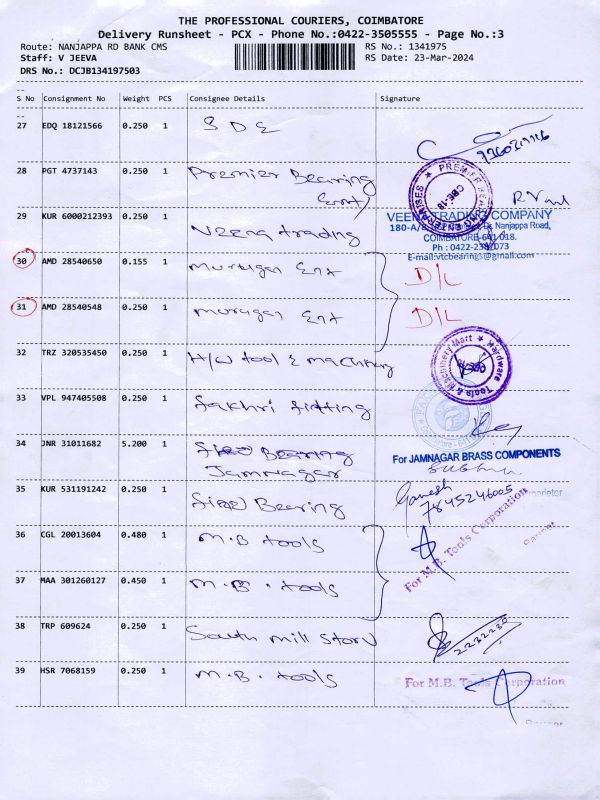 THE PROFESSIONAL COURIERS, COIMBATORE
Delivery Runsheet - PCX - Phone No.:0422-3505555 - Page No.:3
Route: NANJAPPA RD BANK CMS
RS No.: 1341975
Staff: V JEEVA
RS Date: 23-Mar-2024
DRS No.: DCJB134197503
S No Consignment No Weight PCS Consignee Details Signature
27 EDQ 18121566 0.250 1 S D E
28 PGT 4737143 0.250 1 Premier Bearing
PREMIER BEARING ENTERPRISES
CBE-18
29 KUR 6000212393 0.250 1 Veena trading
VEENA TRADING COMPANY
180-A/8, Nanjappa Road,
COIMBATORE-641 018.
E-mail:vtcbearings@gmail.com
30 AMD 28540650 0.155 1 murugan Ent D/L
31 AMD 28540548 0.250 1 murugan Ent D/L
32 TRZ 320535450 0.250 1 H/W tool & machinery
Hardware Tools & Machinery Mart
33 VPL 947405508 0.250 1 Sakhri fitting
34 JNR 31011682 5.200 1 Bearing
Jamnagar
For JAMNAGAR BRASS COMPONENTS
35 KUR 531191242 0.250 1 Bearing
Ganesh
7845246005
36 CGL 20013604 0.480 1 M.B tools
For M.B. Tools Corporation
37 MAA 301260127 0.450 1 M.B. tools
38 TRP 609624 0.250 1 South mill store
2232230
39 HSR 7068159 0.250 1 M.B. tools
For M.B. Tools Corporation